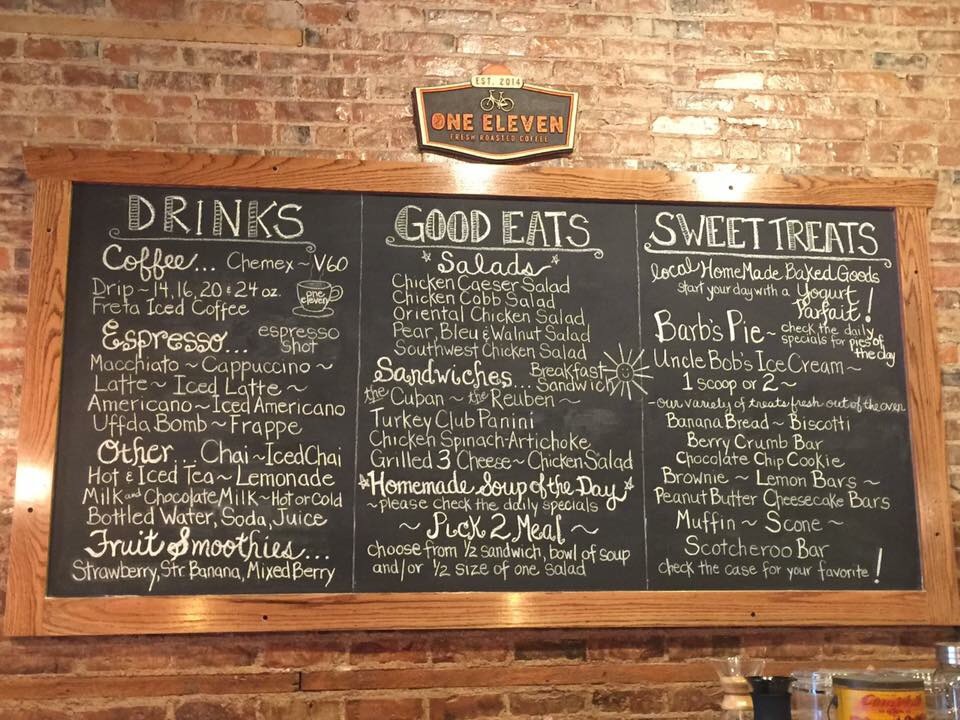 EST. 2014
ONE ELEVEN
FRESH ROASTED COFFEE
DRINKS
Coffee... Chemex ~ V60
Drip ~ 14, 16, 20 & 24 oz.
Freta Iced Coffee
one eleven
Espresso... espresso shot
Macchiato ~ Cappuccino ~
Latte ~ Iced Latte ~
Americano ~ Iced Americano
Uffda Bomb ~ Frappe
Other.... Chai ~ Iced Chai
Hot & Iced Tea ~ Lemonade
Milk and Chocolate Milk ~ Hot or Cold
Bottled Water, Soda, Juice
Fruit Smoothies...
Strawberry, Str. Banana, Mixed Berry
GOOD EATS
Salads
Chicken Caeser Salad
Chicken Cobb Salad
Oriental Chicken Salad
Pear, Bleu & Walnut Salad
Southwest Chicken Salad
Sandwiches.... Breakfast Sandwich
the Cuban ~ the Reuben ~
Turkey Club Panini
Chicken Spinach-Artichoke
Grilled 3 Cheese ~ Chicken Salad
Homemade Soup of the Day
~ please check the daily specials
~ Pick 2 Meal ~
choose from 1/2 sandwich, bowl of soup
and/or 1/2 size of one salad
SWEET TREATS
local HomeMade Baked Goods
start your day with a Yogurt
Parfait!
Barb's Pie ~ check the daily
specials for pies of
the day
Uncle Bob's Ice Cream ~
1 scoop or 2 ~
- our variety of treats fresh out of the oven
Banana Bread ~ Biscotti
Berry Crumb Bar
Chocolate Chip Cookie
Brownie ~ Lemon Bars ~
Peanut Butter Cheesecake Bars
Muffin ~ Scone ~
Scotcheroo Bar
check the case for your favorite!